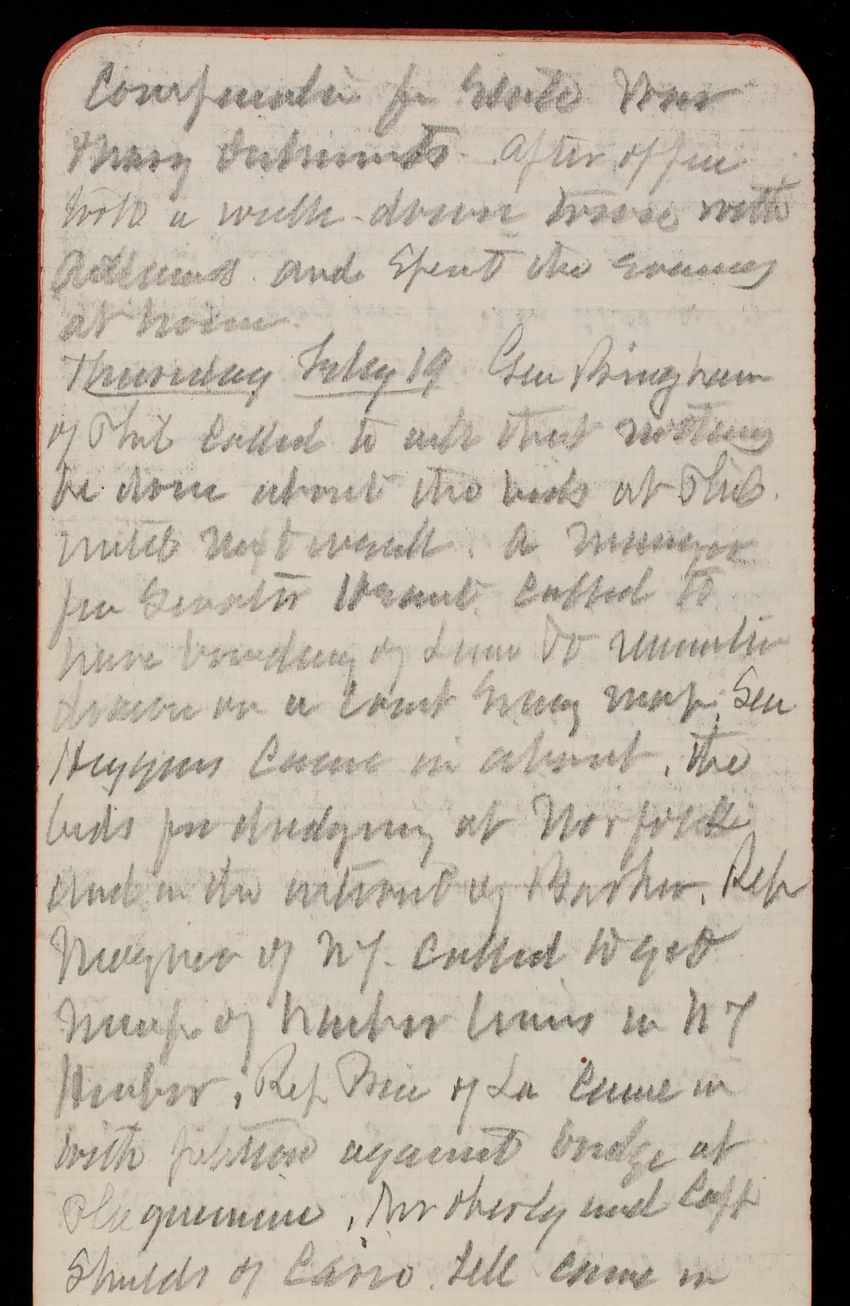 for State War
Navy Department. After office
took a walk down town with
Adkins and spent the evening
at home.
Thursday Feby 19 Gen Bingham
of Phil called to ask that nothing
be done about the bids at Phil.
until next week. A
for Senator called to
have boundary of
drawn on a Coast Survey map. Sen
Higgins came in about, the
bids for dredging at Norfolk
and in the interest of Barker. Rep
of N.Y. called to get
map of harbor lines in N Y
Harbor, Rep Price of La came in
with petition against bridge at
Plaquemine, Mr and Capt
Shields of Cairo. Ill came in